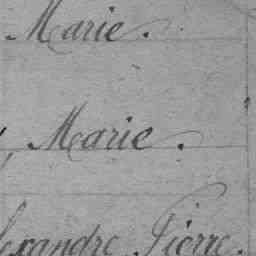 Marie.
, Marie.
lexandre Pierre.